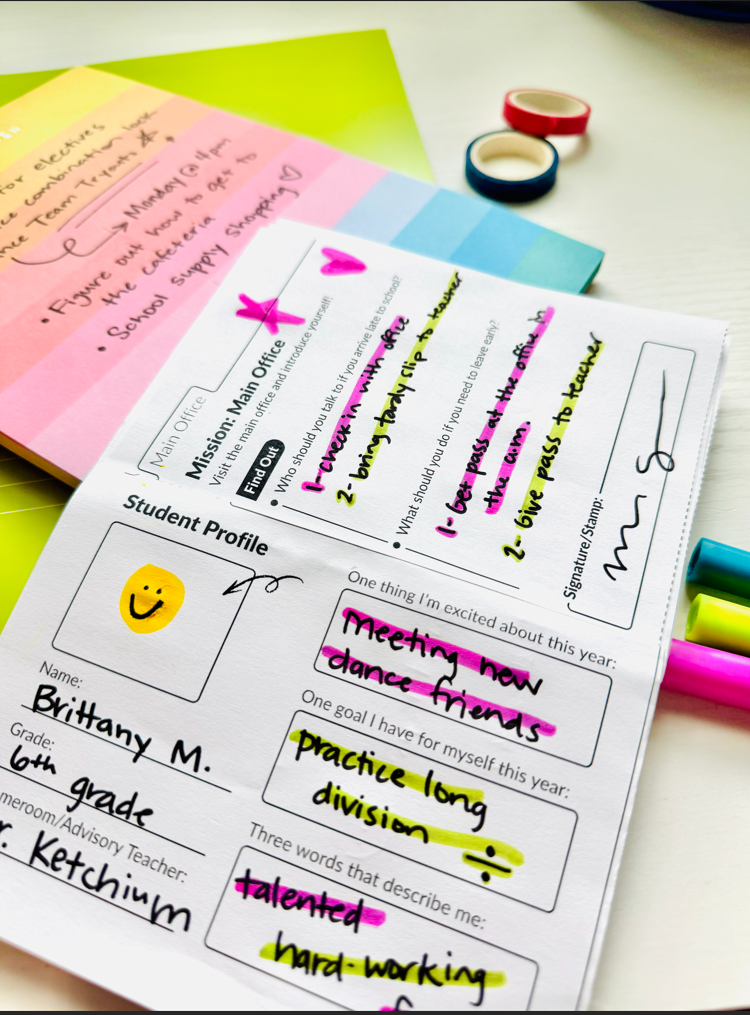 for electives
combination lock
Team Tryouts
Monday @ 4pm
• Figure out how to get to
the cafeteria
• School supply shopping ♡
Main Office
Mission: Main Office
Visit the main office and introduce yourself!
Find Out
• Who should you talk to if you arrive late to school?
1- check in with office
2- bring tardy clip to teacher
• What should you do if you need to leave early?
1- Get pass at the office in
the a.m.
2- Give pass to teacher
Signature/Stamp:
Student Profile
Name:
Brittany M.
Grade:
6th grade
meroom/Advisory Teacher:
r. Ketchium
One thing I'm excited about this year:
Meeting new
dance friends
One goal I have for myself this year:
practice long
division ÷
Three words that describe me:
talented
hard-working